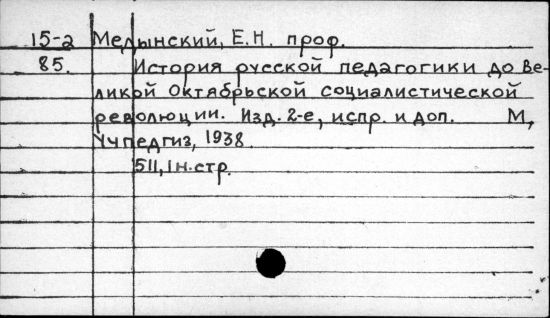 15-2 Медынский, Е.Н. проф.
85. История русской педагогики до Ве-
ликой Октябрьской социалистической
революции. Изд. 2-е, испр. и доп. М,
Учпедгиз, 1938
511, 1 н. стр.